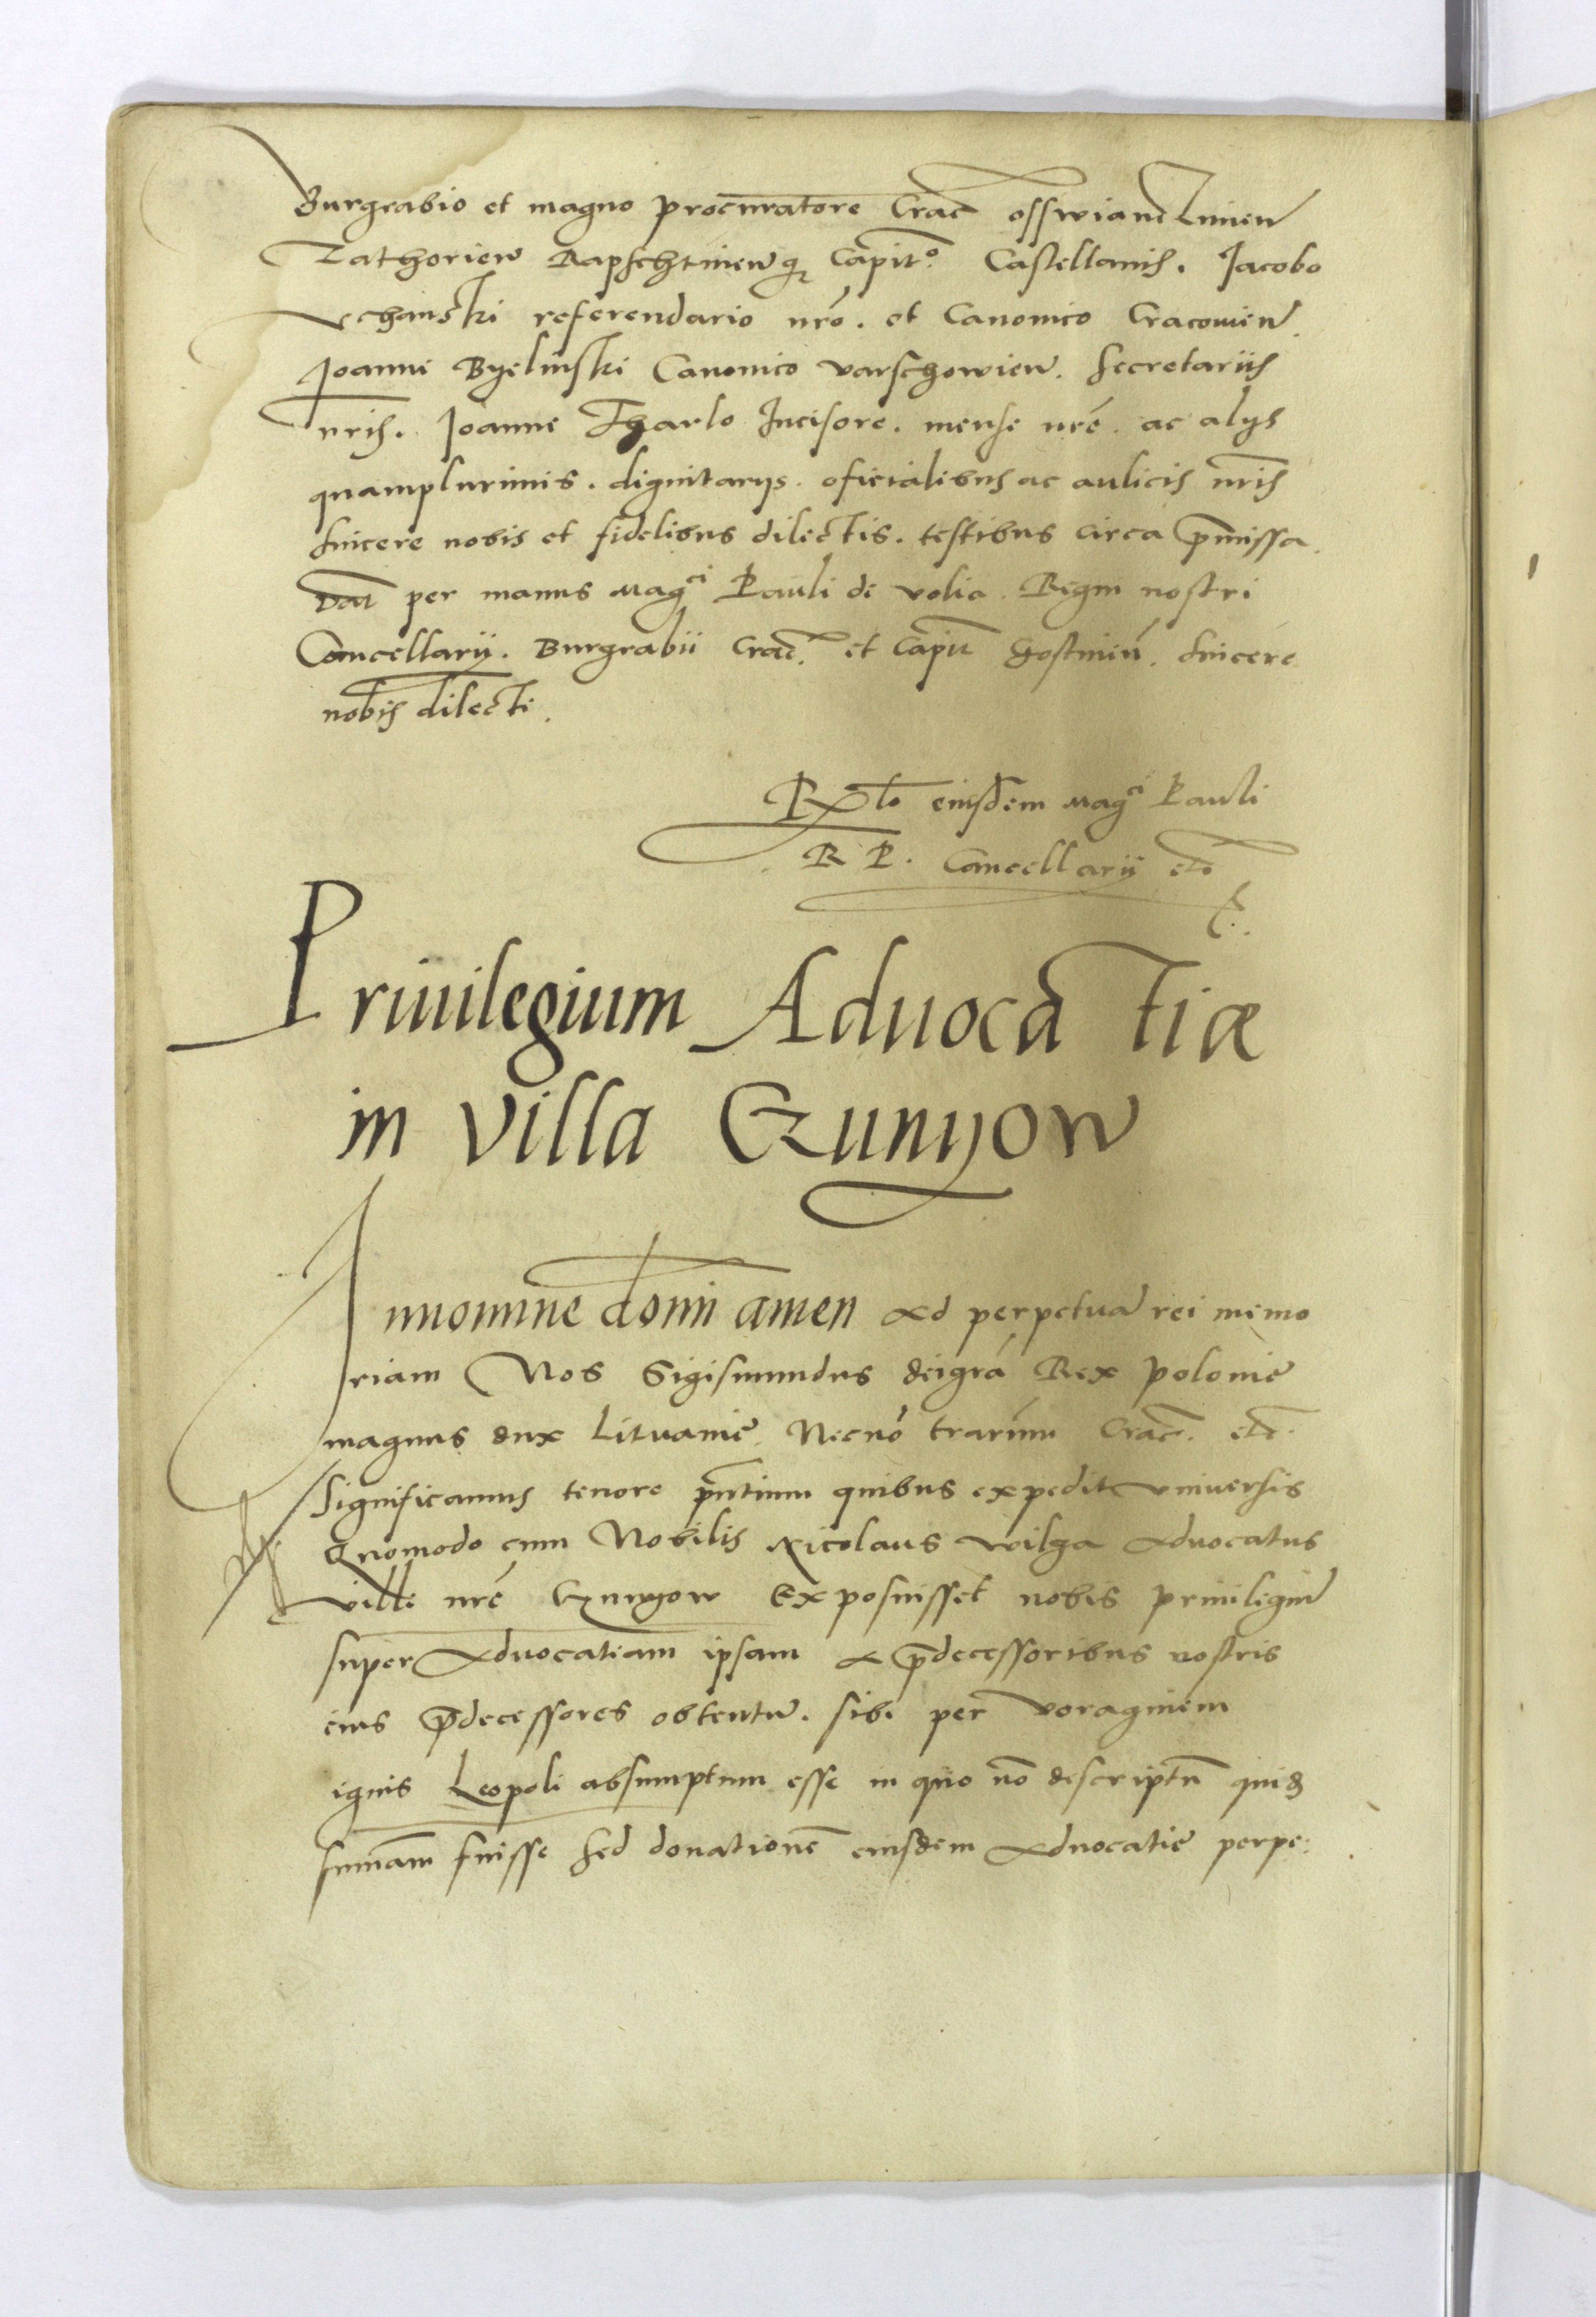 Burgrabio et magno procuratore Crac̄ osswiancZimen̄
Zathorien̄ Rapschtinen̄ q̨ Capit.º Castellanis. Jacobo
Vchanski referendario nr̄o. et Canonico Cracouien̄
Joanne Byelinski Canonico varschowien̄. secretariis
nris. Joanne Tharlo Incisore. mense nrē. ac alys
quamplurimis. dignitarys. oficialibus ac aulicis nr̄is
sincere nobis et fidelibus dilectis. testibus circa p̄missa.
Dat̄ per manus Magci Pauli de volia. Regni nostri
Cancellarij. Burgrabii Crac̄. et Capit̄ Gostinin̄. sincere
nobis dilecti.
Rłō eiusdem Magci Pauli
R P. Cancellarij etc̄
Priuilegium Aduocatiæ
in villa CZunyow
Innomine domī amen Ad perpetuā rei memo
riam Nos Sigismundus deigrā Rex polonie
magnus dux Lituanie. Necnō trarūm Crac̄. etc̄.
significamus tenore pn̄tium quibus expedit vniuersis
Quomodo cum Nobilis Nicolaus wilga Aduocatus
ville nrē CZunyow Exposuisset nobis priuilegiū
super Aduocatiam ipsam a p̄decessoribus nostris
eius p̄decessores obtentū. sibi per voraginem
ignis Leopoli absumptum esse in quo nō descriptū quid
summam fuisse sed donationē eiusdem Aduocatie perpe: